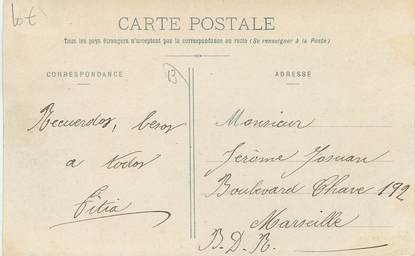 lot
CARTE POSTALE
Tous les pays étrangers n'acceptent pas la correspondance au recto (Se renseigner à la Poste)
CORRESPONDANCE
B
ADRESSE
Recuerdos, besos
a todos
Titia
Monsieur
Jérôme Josuan
Boulevard Chave 192
Marseille
B. D. R.